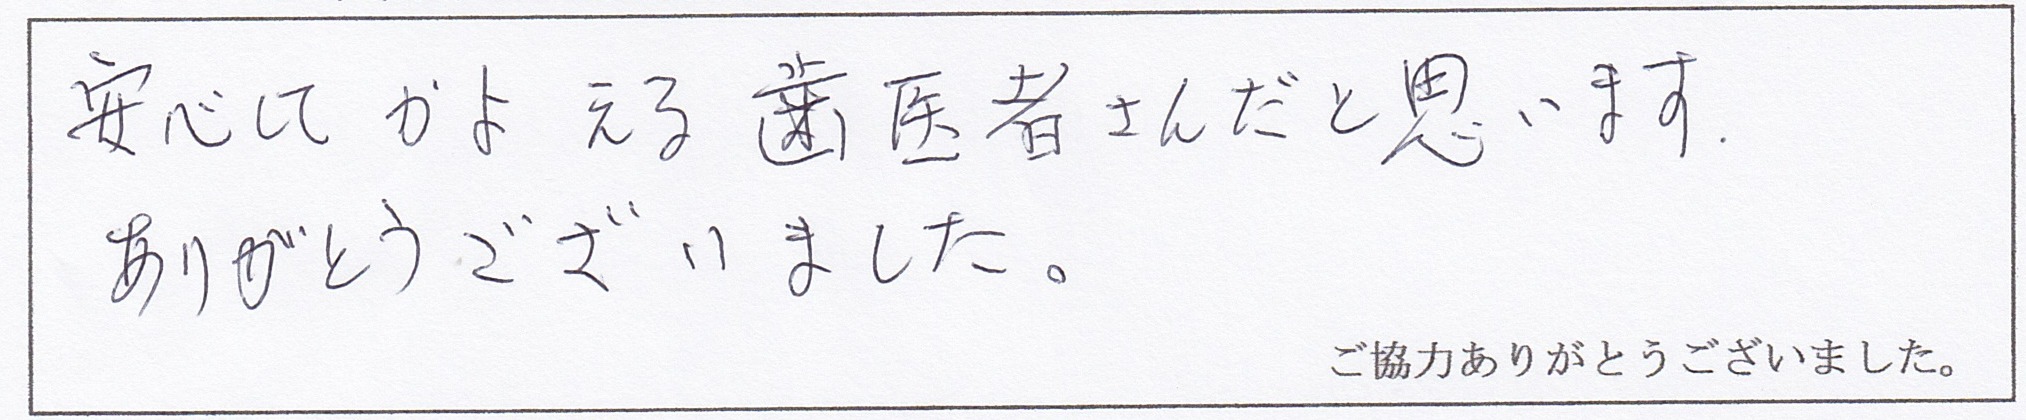 安心して かよえる 歯医者さんだと思います.
ありがとうございました。
ご協力ありがとうございました。